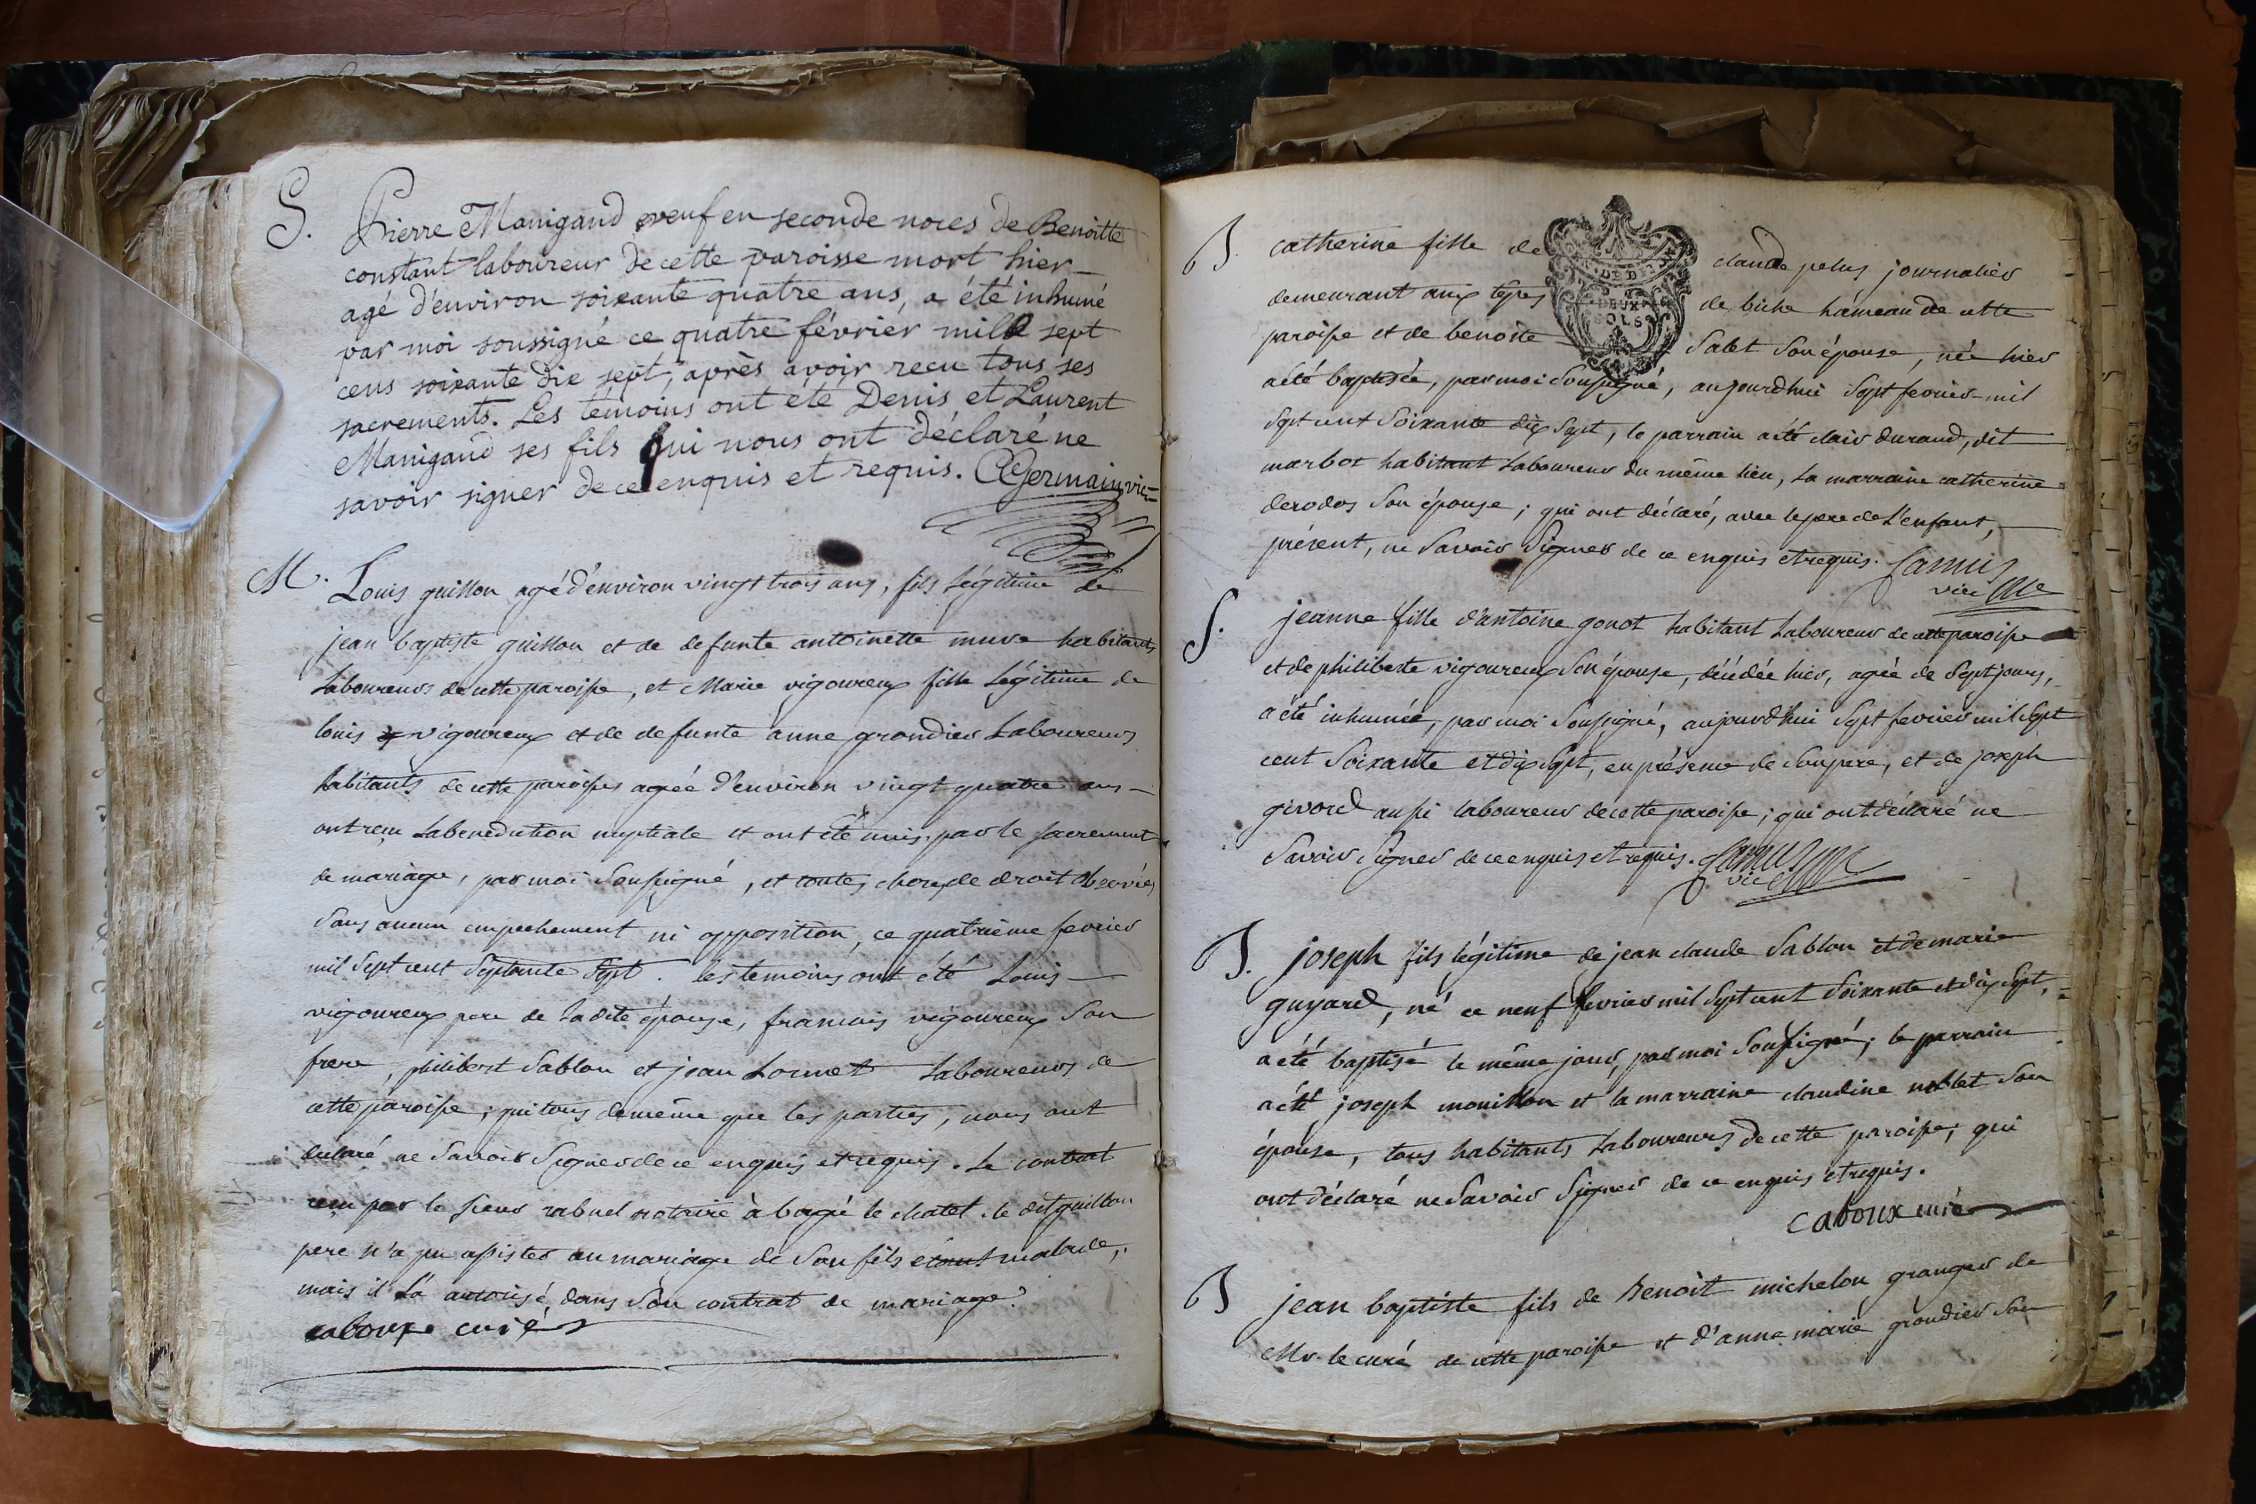 S. Pierre Manigaud veuf en seconde noces de Benoitte
constant laboureur de cette paroisse mort hier
agé d'environ soixante quatre ans, a été inhumé
par moi soussigné ce quatre février mille sept
cens soixante dix sept, après avoir recu tous ses
sacrements. Les témoins ont été Denis et Laurent
Manigaud ses fils qui nous ont déclaré ne
savoir signer de ce enquis et requis. Germain vic=
M. Louis guillon agé d'environ vingt trois ans, fils légitime de
jean baptiste guillon et de defunte antoinette habitants
Laboureurs de cette paroisse, et Marie vigoureux fille légitime de
louis vigoureux et de defunte anne grondier Laboureurs
habitants de cette paroisse agée d'environ vingt quatre ans
ont reçu la benediction nuptiale et ont été unis par le sacrement
de mariage, par moi soussigné, et toutes choses de droit observées
sans aucun empechement ni opposition, ce quatrième fevrier
mil sept cent septante sept. les temoins ont été Louis
vigoureux pere de la dite épouse, francois vigoureux son
frere, philibert Sablon et jean Lornet Laboureurs de
cette paroisse; qui tous de même que les parties, nous ont
déclaré ne savoir signer de ce enquis et requis. Le contrat
reçu par le sieur rabuel notaire à bagé le chatel. le dit guillon
pere n'a pu assister au mariage de son fils étant malade,
mais il l'a autorisé dans son contrat de mariage.
caboux curé
B. catherine fille de claude pelus journalier
demeurant aux de biche hámeau de cette
paroisse et de benoite Salet son épouse, née hier
a été baptisée, par moi soussigné, aujourdhui sept fevrier mil
sept cent soixante dix sept, le parrain a été clair durand, dit
marbot habitant Laboureur du même lieu, la marraine catherine
derodos son épouse; qui ont déclaré, avec le pere de l'enfant,
présent, ne savoir signer de ce enquis et requis. Camus
vic
DEUX
SOLS
S. jeanne fille d'antoine gonot habitant Laboureur de cette paroisse
et de philiberte vigoureux son épouse, décédée hier, agée de sept jours,
a été inhumée, par moi soussigné, aujourd'hui sept fevrier mil sept
cent soixante et dix sept, en présence de son pere, et de joseph
givord aussi laboureur de cette paroisse; qui ont déclaré ne
savoir signer de ce enquis et requis. Camus
vic
B. joseph fils légitime de jean claude Sablon et de marie
guyard, né ce neuf fevrier mil sept cent soixante et dix sept,
a été baptisé le même jour, par moi soussigné; le parrain
a été joseph monillon et la marraine claudine noblet son
épouse, tous habitants Laboureurs de cette paroisse; qui
ont déclaré ne savoir signer de ce enquis et requis.
caboux curé
B jean baptiste fils de Benoit michelon granger de
Mr. le curé de cette paroisse et d'anne marie grondier son